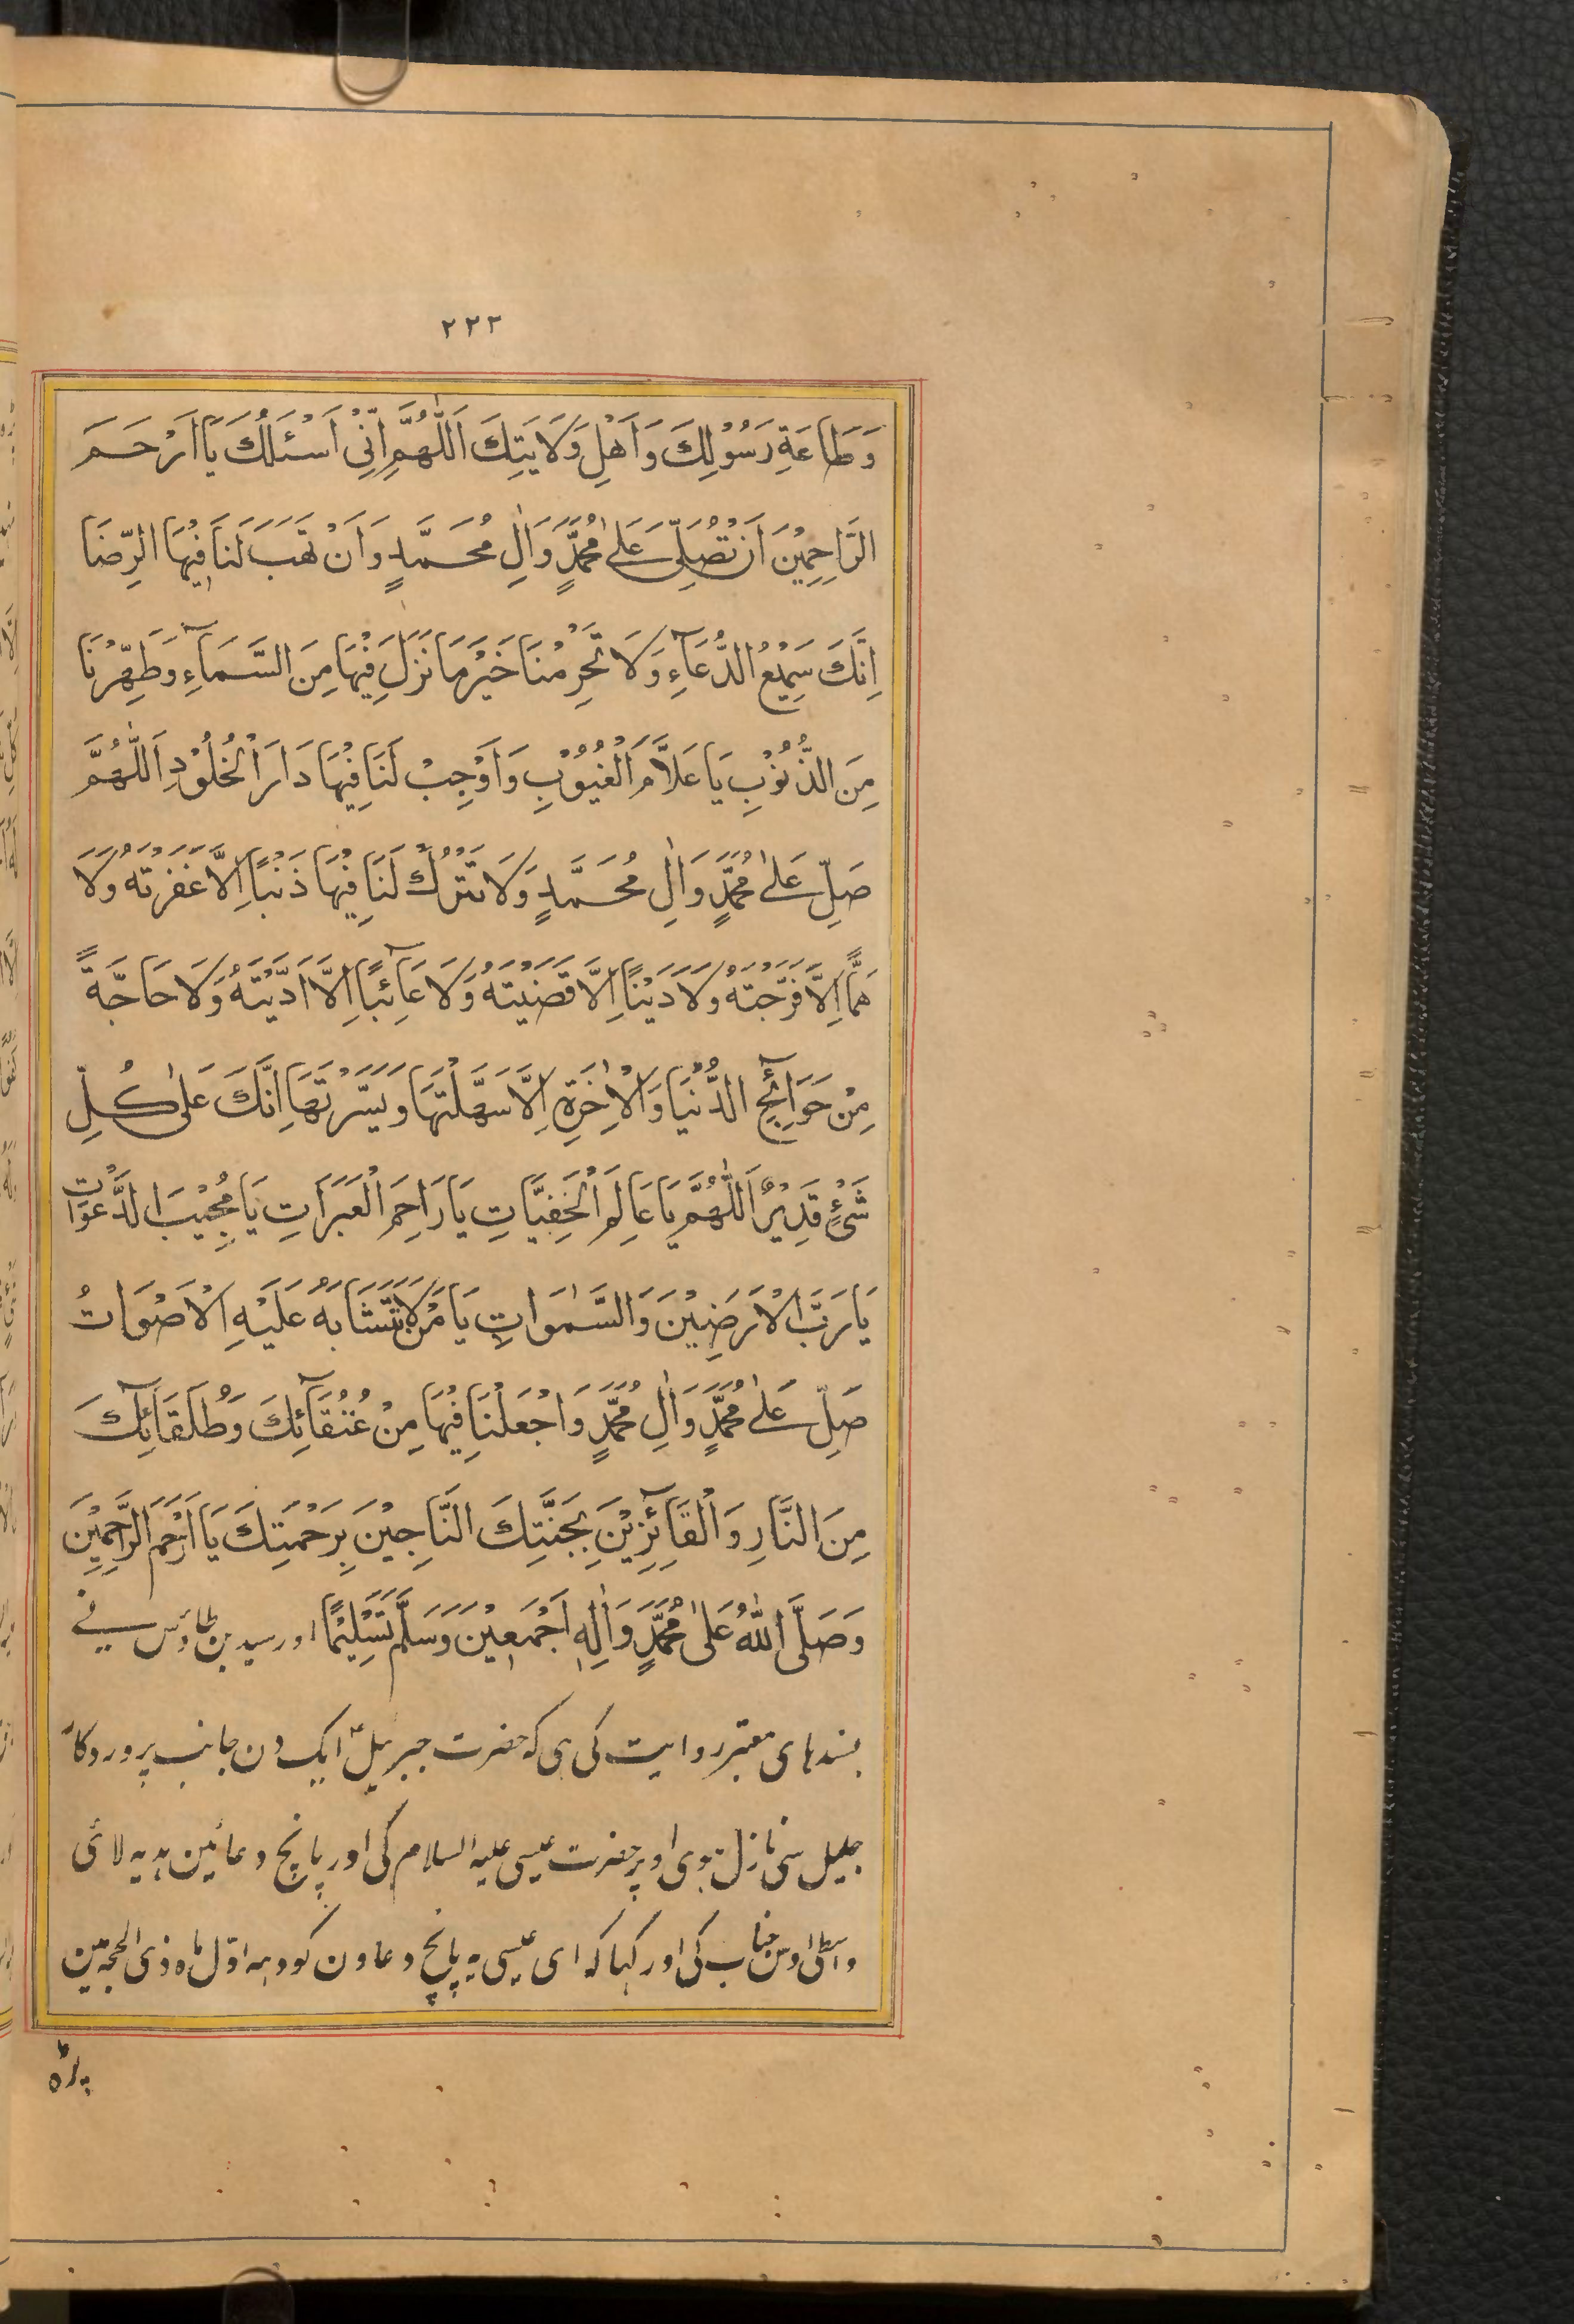 ۲۲۲
وَطَاعَةِ رَسُوْلِكَ وَاَهْلِ وَلَايَتِكَ اَللّٰهُمَّ اِنِّىْ اَسْئَلُكَ يَا اَرْحَمَ
الرَّاحِمِيْنَ اَنْ تُصَلِّىَ عَلٰى مُحَمَّدٍ وَاٰلِ مُحَمَّدٍ وَاَنْ تَهَبَ لَنَا فِيْهَا الرِّضَا
اِنَّكَ سَمِيْعُ الدُّعَآءِ وَلَا تَحْرِمْنَا خَيْرَ مَا نَزَلَ فِيْهَا مِنَ السَّمَآءِ وَطَهِّرْنَا
مِنَ الذُّنُوْبِ يَا عَلَّامَ الْغُيُوْبِ وَاَوْجِبْ لَنَا فِيْهَا دَارَ الْخُلُوْدِ اَللّٰهُمَّ
صَلِّ عَلٰى مُحَمَّدٍ وَاٰلِ مُحَمَّدٍ وَلَا تَتْرُكْ لَنَا فِيْهَا ذَنْبًا اِلَّا غَفَرْتَهُ وَلَا
هَمًّا اِلَّا فَرَّجْتَهُ وَلَا دَيْنًا اِلَّا قَضَيْتَهُ وَلَا غَآئِبًا اِلَّا اَدَّيْتَهُ وَلَا حَاجَّةً
مِنْ حَوَآئِجِ الدُّنْيَا وَالْاٰخِرَةِ اِلَّا سَهَّلْتَهَا وَيَسَّرْتَهَا اِنَّكَ عَلٰى كُلِّ
شَىْءٍ قَدِيْرٌ اَللّٰهُمَّ يَا عَالِمَ الْخَفِيَّاتِ يَا رَاحِمَ الْعَبَرَاتِ يَا مُجِيْبَ الدَّعَوَاتِ
يَا رَبَّ الْاَرَضِيْنَ وَالسَّمٰوَاتِ يَا مَنْ لَا تَتَشَابَهُ عَلَيْهِ الْاَصْوَاتُ
صَلِّ عَلٰى مُحَمَّدٍ وَاٰلِ مُحَمَّدٍ وَاجْعَلْنَا فِيْهَا مِنْ عُتَقَآئِكَ وَطُلَقَآئِكَ
مِنَ النَّارِ وَالْفَآئِزِيْنَ بِجَنَّتِكَ النَّاجِيْنَ بِرَحْمَتِكَ يَا اَرْحَمَ الرَّاحِمِيْنَ
وَصَلَّى اللّٰهُ عَلٰى مُحَمَّدٍ وَاٰلِهٖ اَجْمَعِيْنَ وَسَلَّمَ تَسْلِيْمًا اور سید بن طاؤس نے
بسندہای معتبر روایت کی ہی کہ حضرت جبرئیلؑ ایک دن جانب پروردکار
جلیل سی نازل ہوی اوپر حضرت عیسی علیہ السلام کی اور پانچ دعائین ہدیہ لائی
واسطی اوس جناب کی اور کہا کہ ای عیسی یہ پانچ دعاون کو دہہ اوّل ماہ ذی الحجہ مین
پڑہ